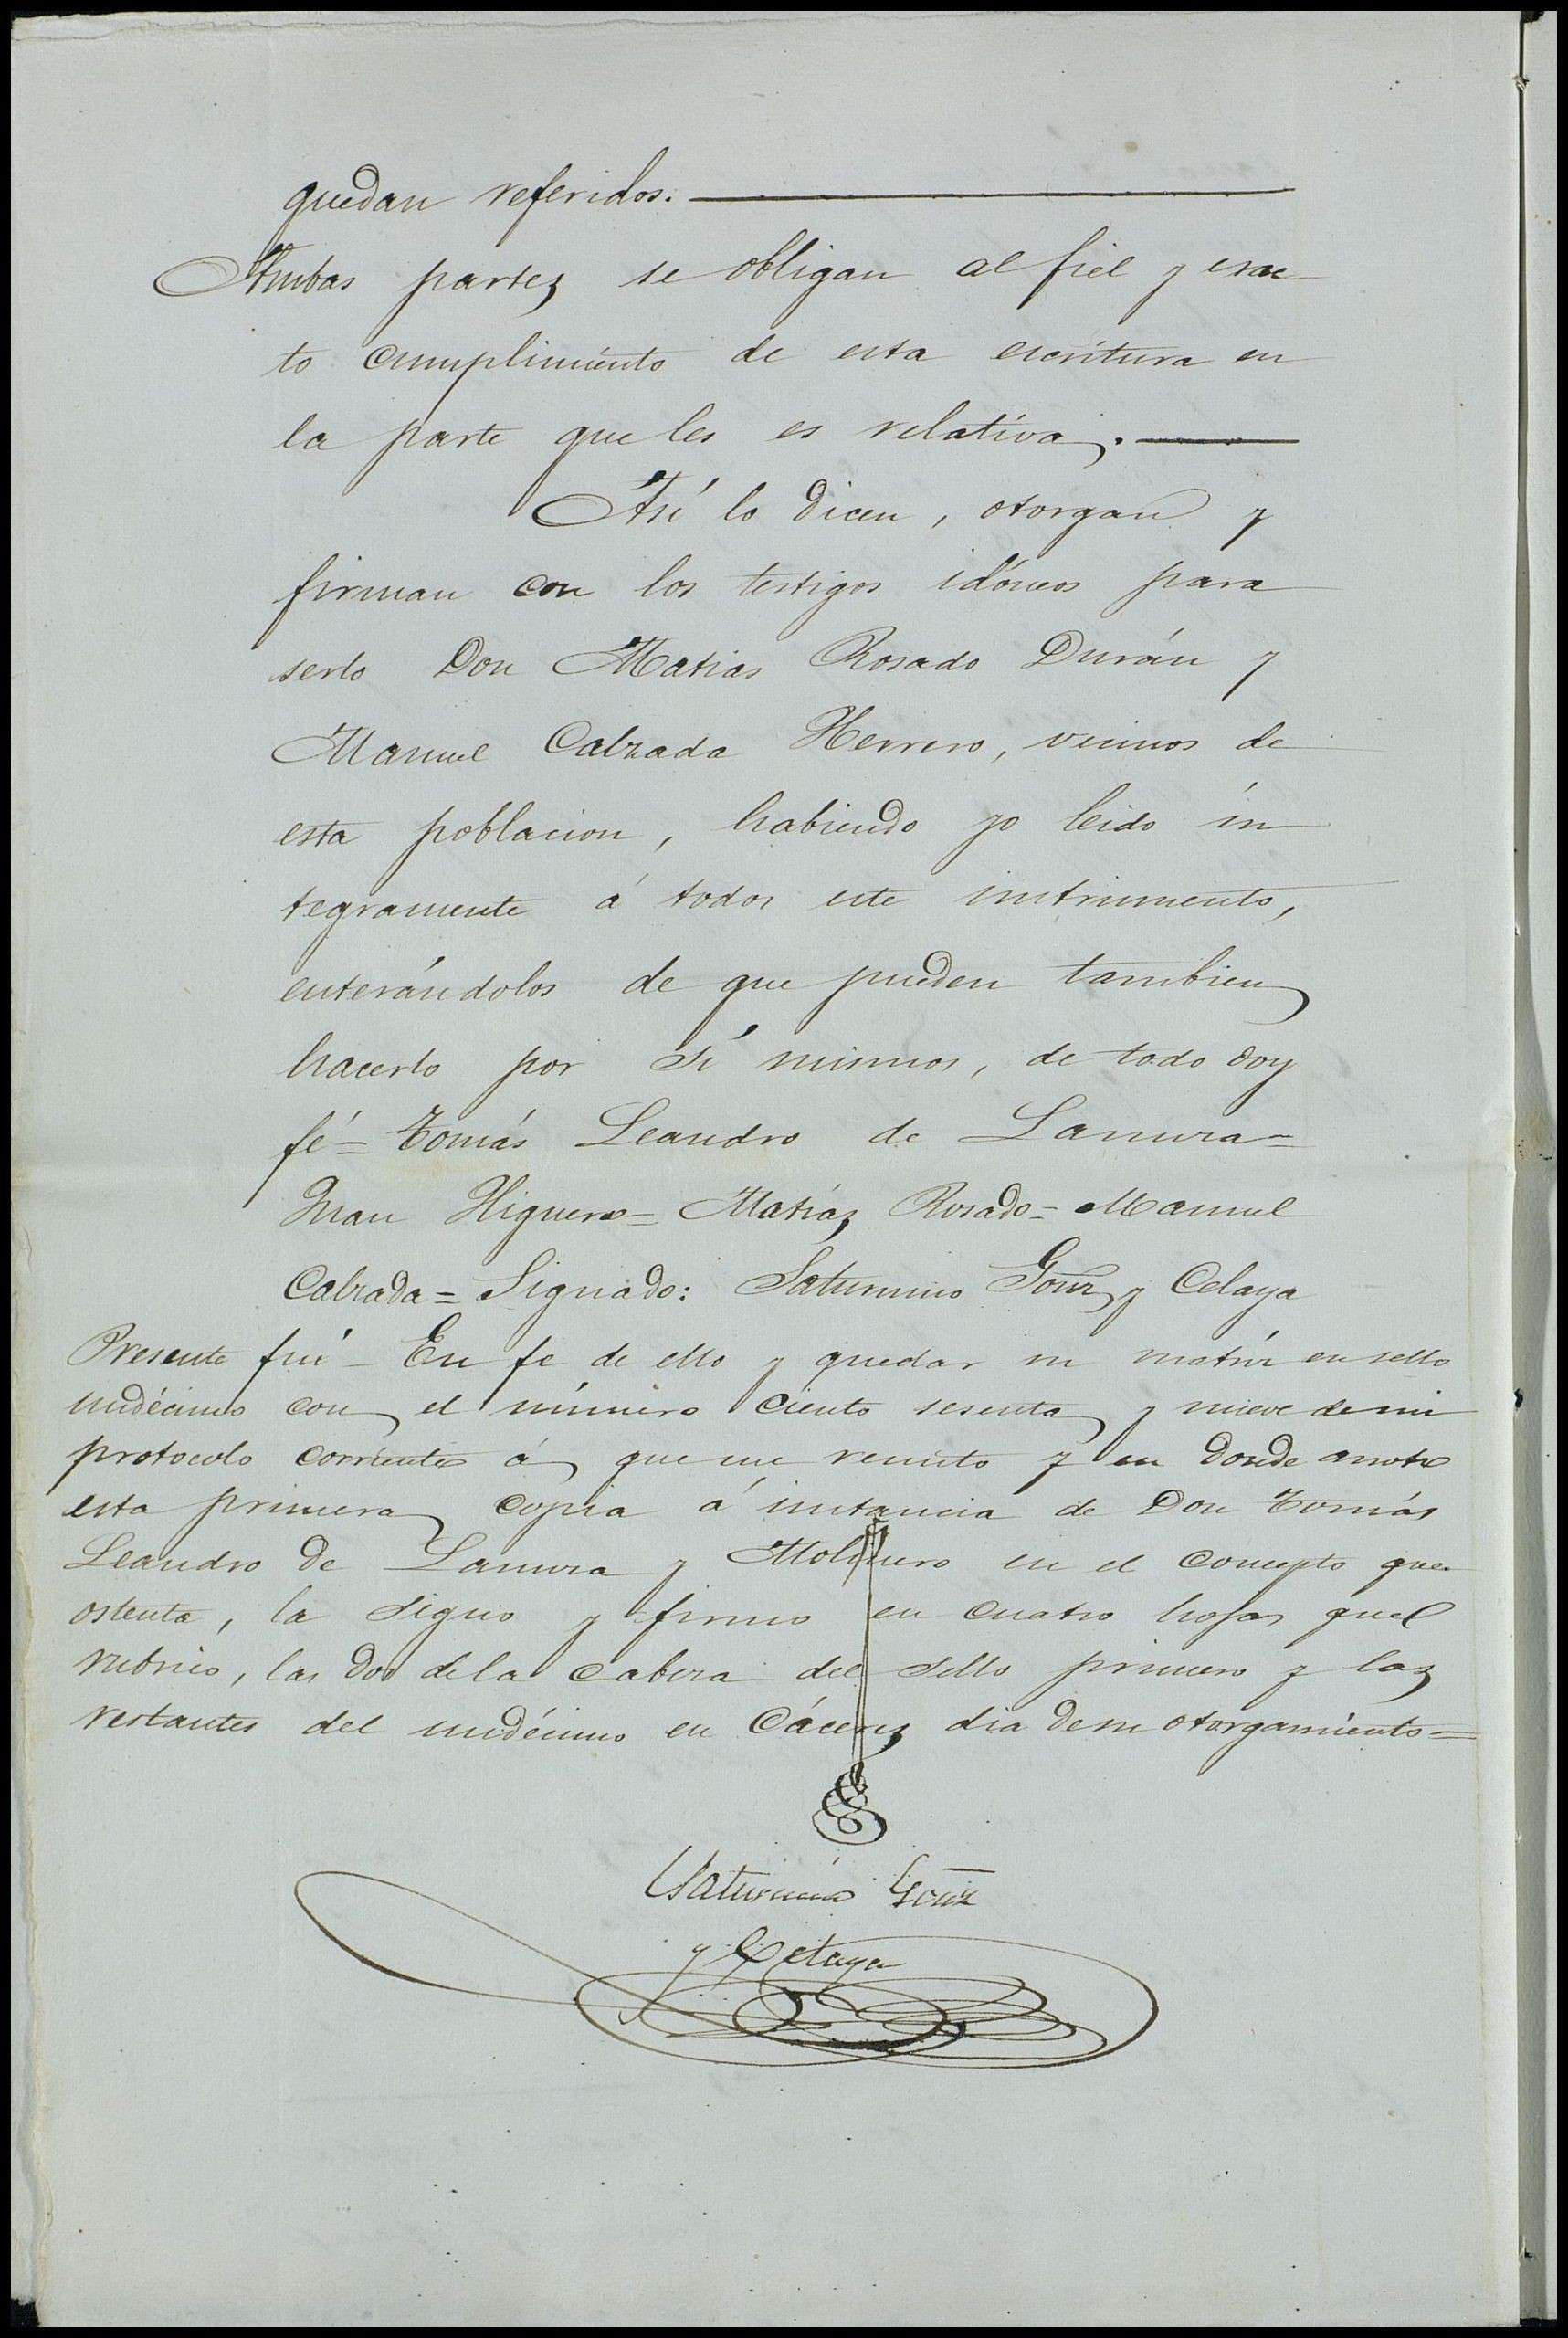 quedan referidos.
Ambas partes se obligan al fiel y exac
to cumplimiento de esta escritura en
la parte que les es relativa.
Así lo dicen, otorgan y
firman con los testigos idóneos para
serlo Don Matias Rosado Durán y
Manuel Calzada Herrero, vecinos de
esta poblacion, habiendo yo leido ín
tegramente á todos este instrumento,
enterándolos de que pueden tambien
hacerlo por sí mismos, de todo doy
fé = Tomás Leandro de Lamura =
Juan Higuero = Matías Rosado = Manuel
Calzada = Signado: Saturnino Gonz y Celaya
Presente fuí - En fe de ello y quedar su matriz en sello
undécimo con el número ciento sesenta y nueve de mi
protocolo corriente á que me remito y en donde anoto
esta primera copia á instancia de Don Tomás
Leandro de Lamura y Molinero en el concepto que
ostenta, la signo y firmo en cuatro hojas que
rubrico, las dos de la cabeza del sello primero y las
restantes del undécimo en Cáceres dia de su otorgamiento =
Saturnino Gonz
y Celaya